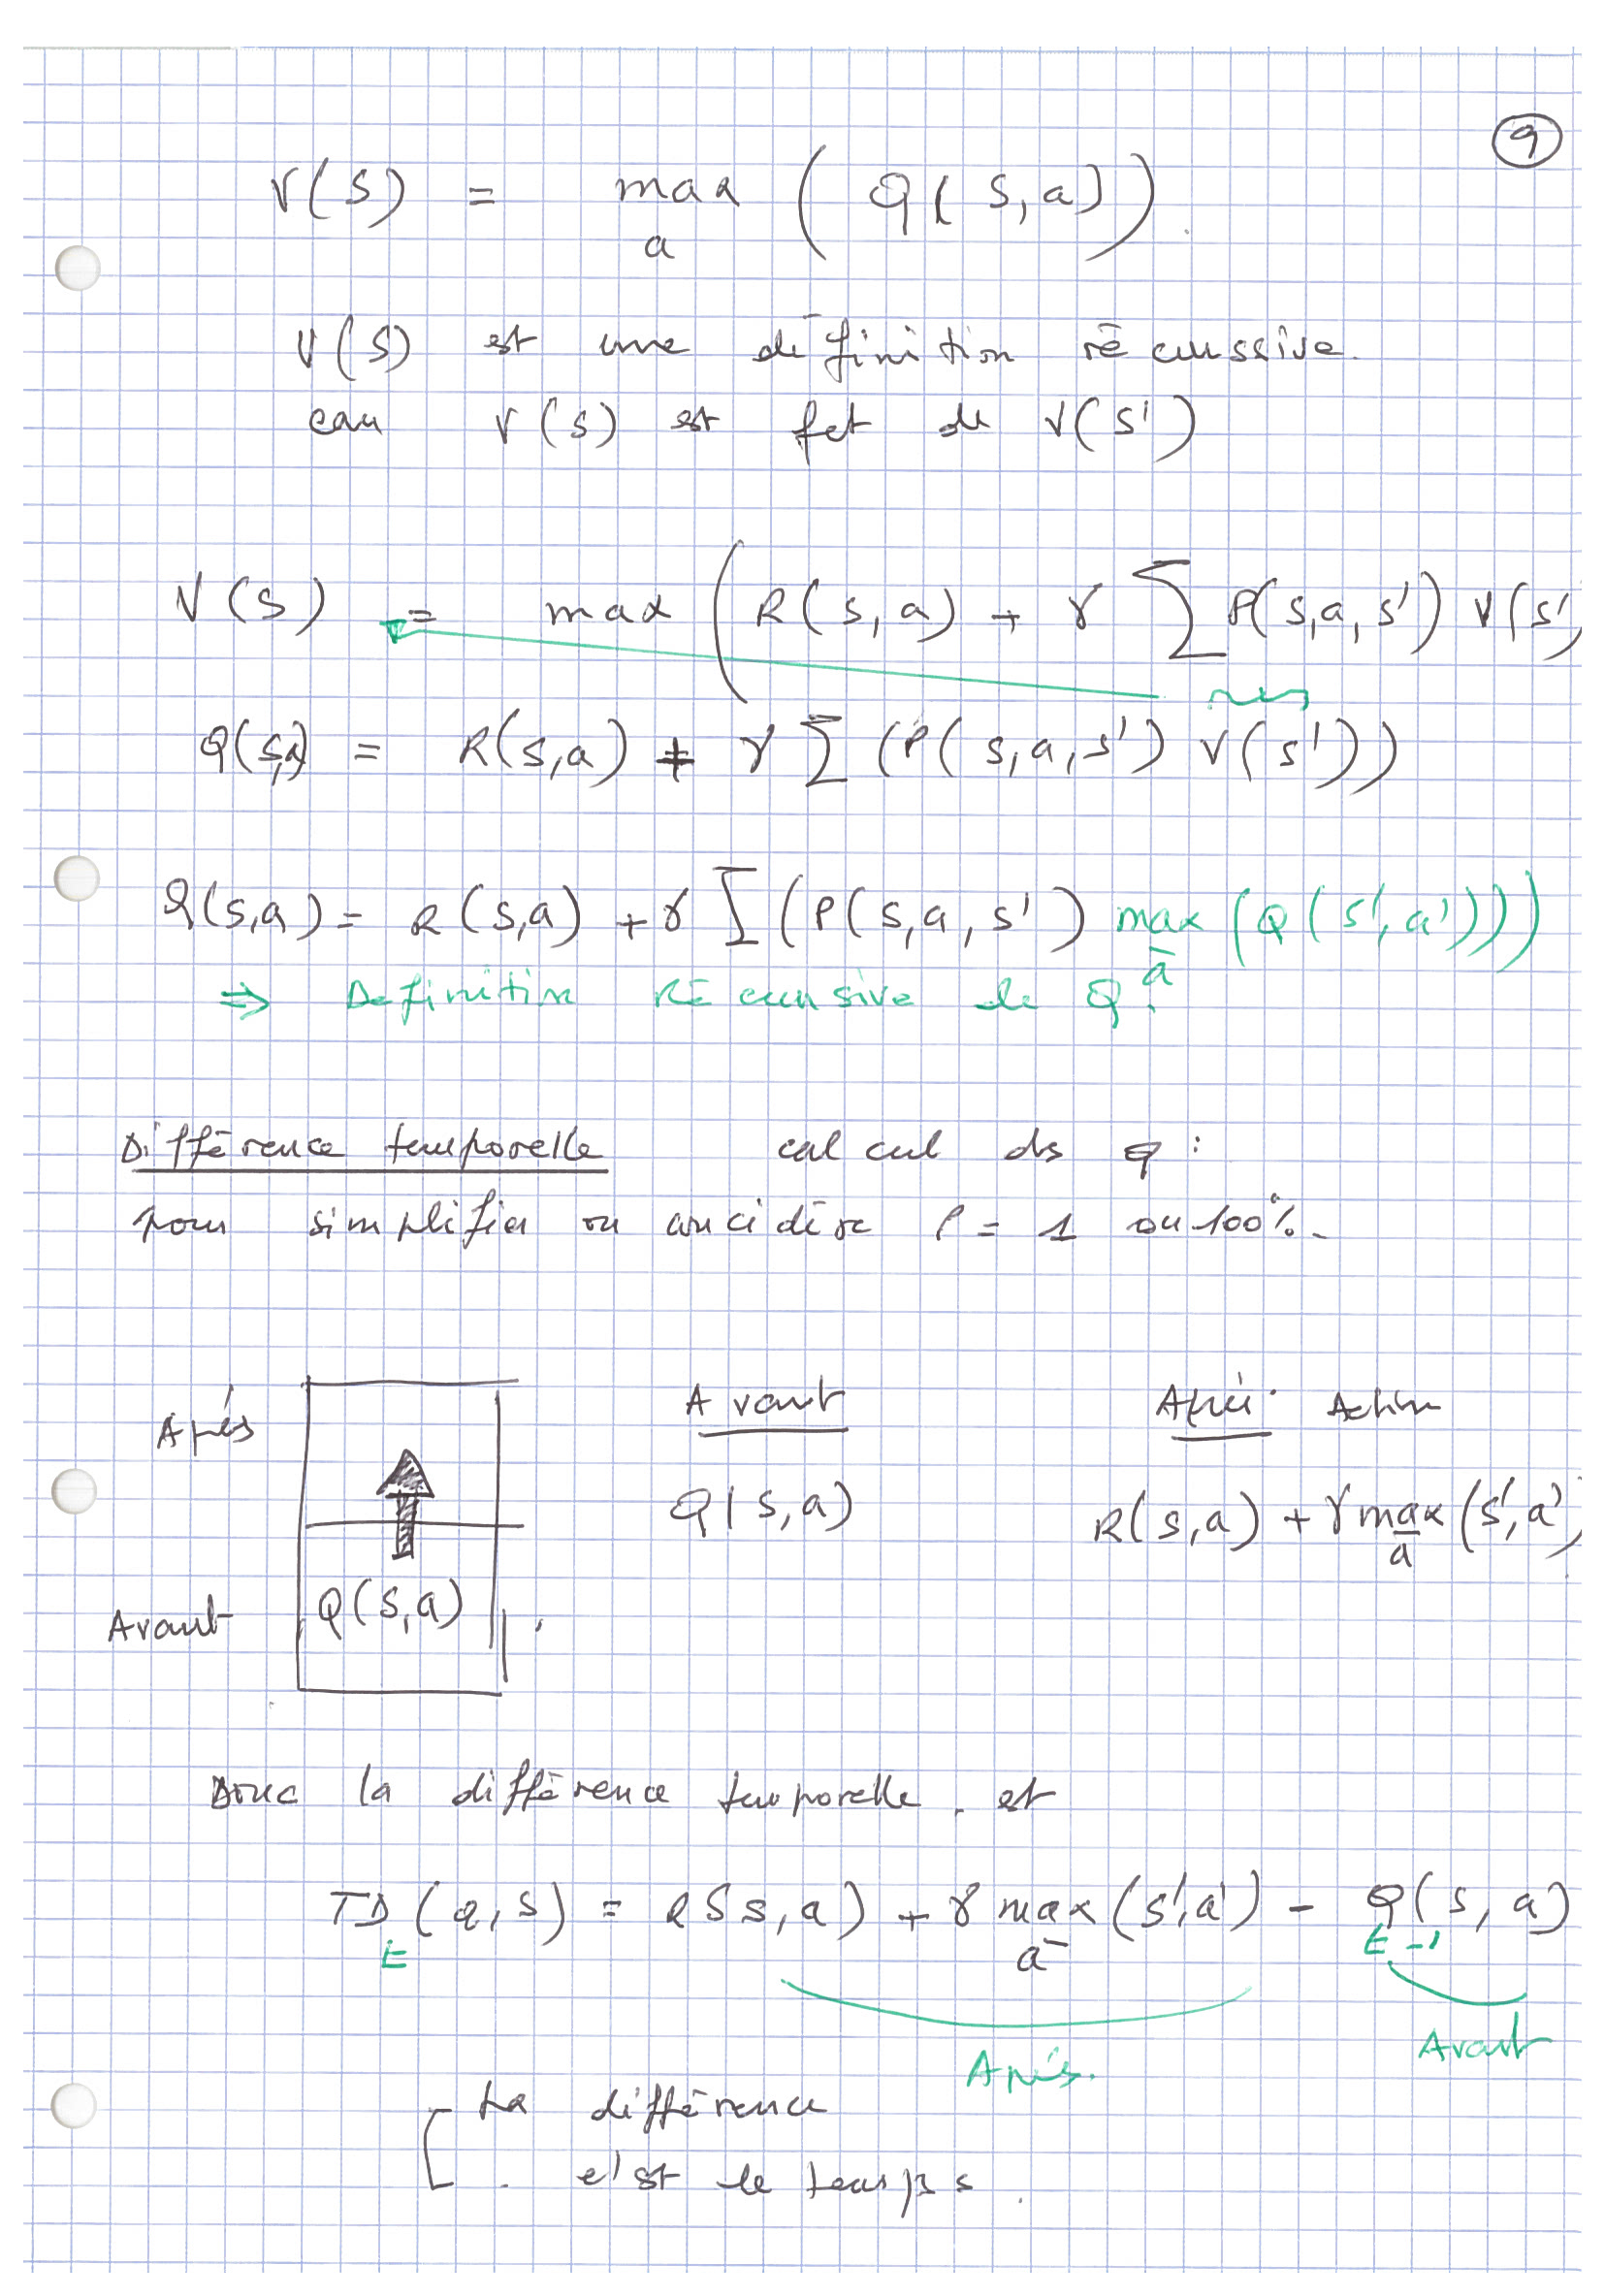 9
V(s) = max ( Q(s,a) )
a
V(s) est une définition récurssive.
car V(s) est fct de V(s')
V(s) = max ( R(s,a) + γ ∑ P(s,a,s') V(s')
Q(s,a) = R(s,a) + γ ∑ (P(s,a,s') V(s'))
Q(s,a) = R(s,a) + γ ∑ (P(s,a,s') max (Q(s',a')))
a
⇒ Définition Récursive de Q.
Différence temporelle calcul ds Q :
pour simplifier on considère P = 1 ou 100%.
Après Avant Après Action
Q(s,a) R(s,a) + γ max (s',a')
a
Avant Q(s,a)
Donc la différence temporelle est
TD (a,s) = R(s,a) + γ max (s',a') - Q(s,a)
t a t-1
Après. Avant
La différence
c'est le temps.